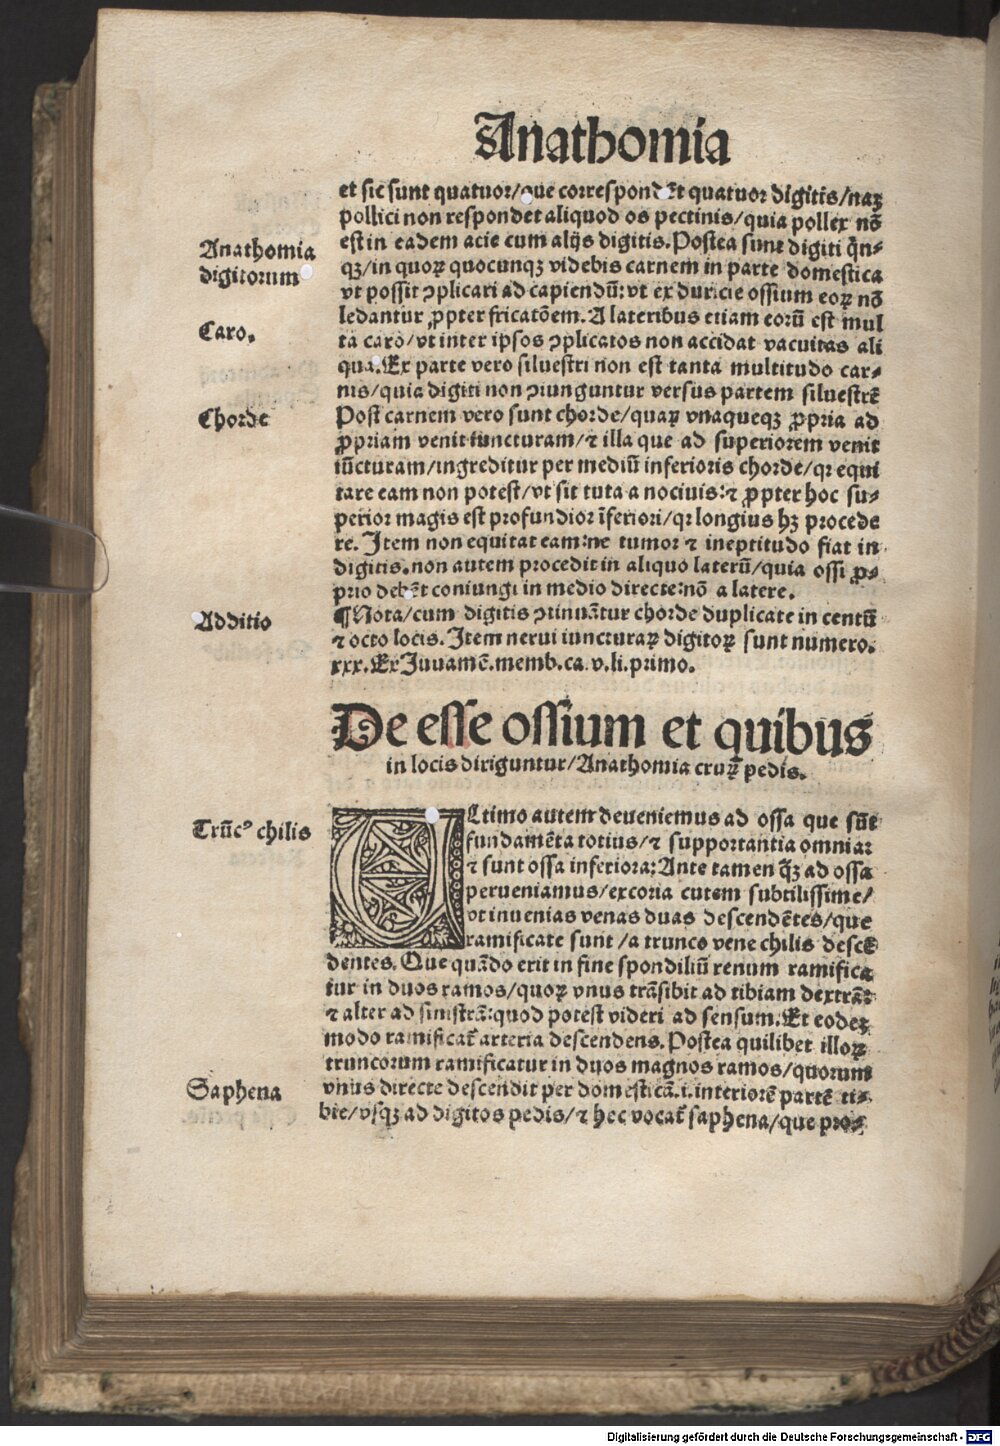 Anathomia
et sic sunt quatuor/que correspondēt quatuor digitis/naꝫ
pollici non respondet aliquod os pectinis/quia pollex nō
est in eadem acie cum alijs digitis. Postea sunt digiti q̄n-
qꝫ/in quoꝝ quocunqꝫ videbis carnem in parte domestica
vt possit ꝯplicari ad capiendū: vt ex duricie ossium eoꝝ nō
ledantur ꝓpter fricatōem. A lateribus etiam eorū est mul
ta caro/vt inter ipsos ꝯplicatos non accidat vacuitas ali
qua. Ex parte vero siluestri non est tanta multitudo car-
nis/quia digiti non ꝯiunguntur versus partem siluestrē
Post carnem vero sunt chorde/quaꝝ vnaqueqꝫ ꝓpria ad
ꝓpriam venit iuncturam/⁊ illa que ad superiorem venit
iūcturam/ingreditur per mediū inferioris chorde/qꝛ equi
tare eam non potest/vt sit tuta a nociuis: ⁊ ꝓpter hoc su-
perior magis est profundior īferiori/qꝛ longius hꝫ procede
re. Item non equitat eam: ne tumor ⁊ ineptitudo fiat in
digitis. non autem procedit in aliquo laterū/quia ossi ꝓ-
prio debēt coniungi in medio directe: nō a latere.
¶Nota/cum digitis ꝯtinuātur chorde duplicate in centū
⁊ octo locis. Item nerui iuncturaꝝ digitoꝝ sunt numero.
xxx. Ex Juuamē. memb. ca. v. li. primo.
Anathomia
digitorum
Caro.
Chorde
Additio
De esse ossium et quibus
in locis diriguntur/Anathomia cruꝝ pedis.
VLtimo autem deueniemus ad ossa que sūt
fundamēta totius/⁊ supportantia omnia:
⁊ sunt ossa inferiora: Ante tamen q̄ꝫ ad ossa
perueniamus/excoria cutem subtilissime/
vt inuenias venas duas descendētes/que
ramificate sunt/a trunco vene chilis descē
dentes. Que quādo erit in fine spondiliū renum ramifica
tur in duos ramos/quoꝝ vnus trāsibit ad tibiam dextrā:
⁊ alter ad sinistrā: quod potest videri ad sensum. Et eodeꝫ
modo ramificat̄ arteria descendens. Postea quilibet illoꝝ
truncorum ramificatur in duos magnos ramos/quorum
vnus directe descendit per domesticā .i. interiorē partē ti-
bie/vsqꝫ ad digitos pedis/⁊ hec vocat̄ saphena/que pro-
Trūcꝰ chilis
Saphena
Digitalisierung gefördert durch die Deutsche Forschungsgemeinschaft - DFG